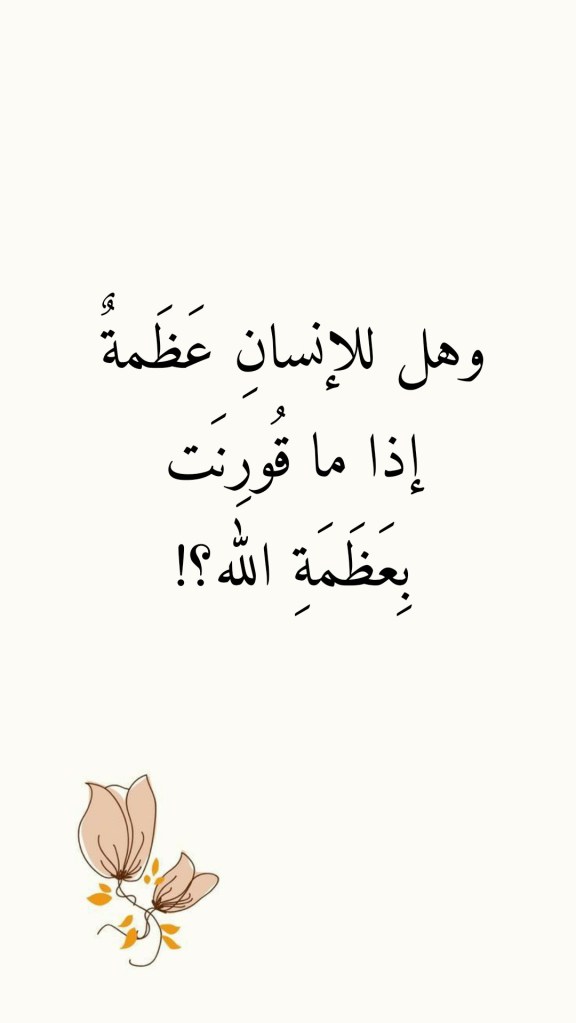 وهل للإنسانِ عَظَمةٌ
إذا ما قُورِنَت
بِعَظَمَةِ الله؟!